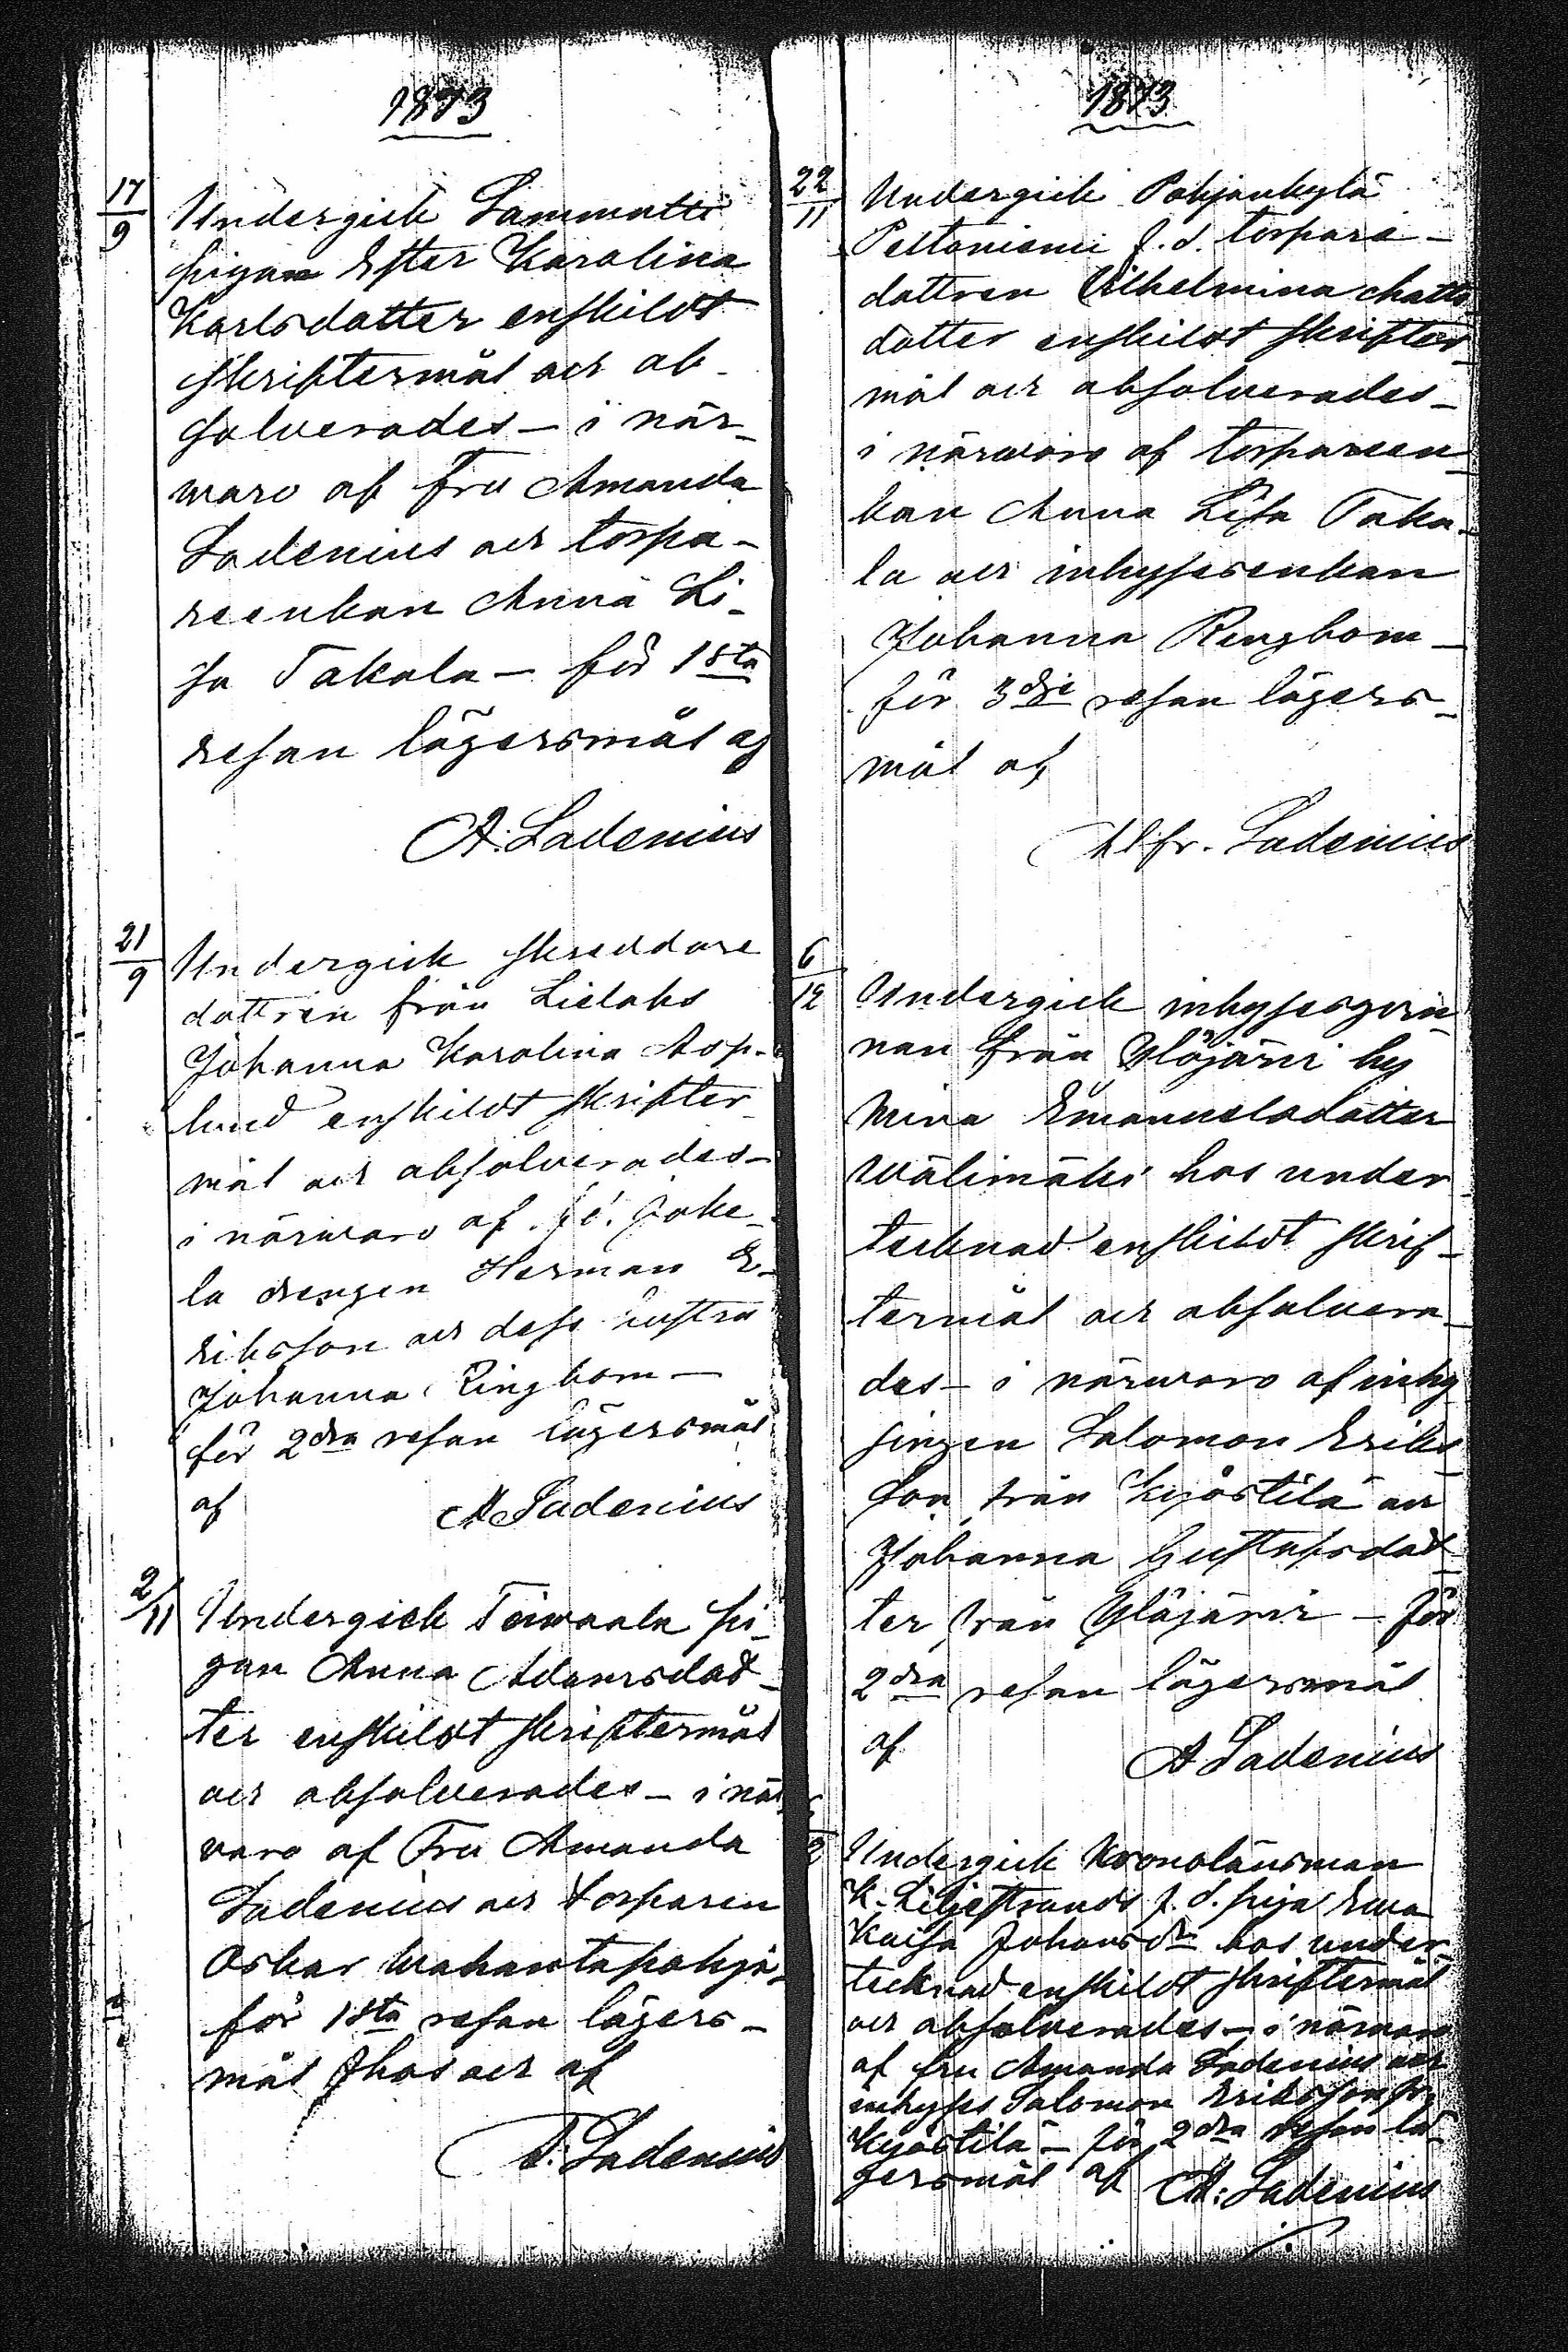 1873
17/9
Undergick Sammatti
pigan Ester Karolina
Karlsdotter enskildt
skriftermål och ab-
solverades – i när-
waro af Fru Amanda
Ladenius och torpa-
reenkan Anna Li-
sa Takala – för 1sta
resan lägersmål af
A. Ladenius
21/9
Undergick skreddare
dottren från Lielaks
Johanna Karolina Asp-
lund enskildt skrifter
mål och absolverades –
i närwaro af f.d. Joke-
la drengen Herman E-
riksson och dess hustru
Johanna Ringbom –
för 2dra resan lägersmål
af A Ladenius
2/11
Undergick Teiwaala pi-
gan Anna Adamsdot-
ter enskildt skriftermål
och absolverades – i när
varo af Fru Amanda
Ladenius och torparen
Oskar Wahantapohja –
för 1sta resan lägers-
mål hos och af
A. Ladenius
1873
22/11
Undergick Pohjankylä
Peltoniemi f.d. torpare-
dottren Wilhelmina Matts
dotter enskildt skrifter
mål och absolverades –
i närwaro af torpareen-
kan Anna Lisa Taka-
la och inhysesenkan
Johanna Ringbom –
för 3dje resan lägers-
mål af
Alfr. Ladenius
6/12
Undergick inhysesqvin-
nan från Ylöjärvi by
Mina Emanuelsdotter
Wälimäki hos under
tecknad enskildt skrif-
termål och absolvera-
des – i närwaro af inhy
singen Salomon Eriks
son från Kyöstilä och
Johanna Gustafsdot
ter från Ylöjärvi – för
2dra resan lägersmål
af A Ladenius
Undergick Kronolänsman
K. Liljestrands f.d. piga Eva
Kaisa Johansdr hos under-
tecknad enskildt skriftermål
och absolverades – i närwaro
af fru Amanda Ladenius och
inhyses Salomon Eriksson fr.
Kyöstilä – för 2dra resan lä-
gersmål af A. Ladenius